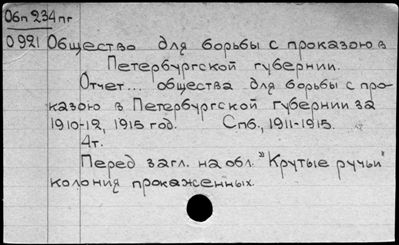 Обп 234 пг
0921 Общество для борьбы с проказою в
Петербургской губернии.
Отчет... общества для борьбы с про-
казою в Петербургской губернии за
1910-12, 1915 год. Спб., 1911-1915.
4т.
Перед загл. на обл. "Крутые ручьи"
колония прокаженных.